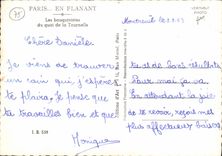 75
PARIS... EN FLANANT
Les bouquinistes
du quai de la Tournelle
Chère Danièle,
Je viens de trouver
un coin qui j'espère
te plaira. Je pense que
tu travailles bien et que
Monique
Montreuil le
tu as de bons résultats
Pour moi ça va.
En attendant la joie
de te revoir, reçois mes
plus affectueux baisers
VERITABLE
PHOTO